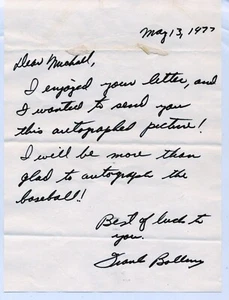 May 13, 1977
Dear Michael,
I enjoyed your letter, and
I wanted to send you
this autographed picture!
I will be more than
glad to autograph the
baseball!
Best of luck to
you.
Frank Bolling